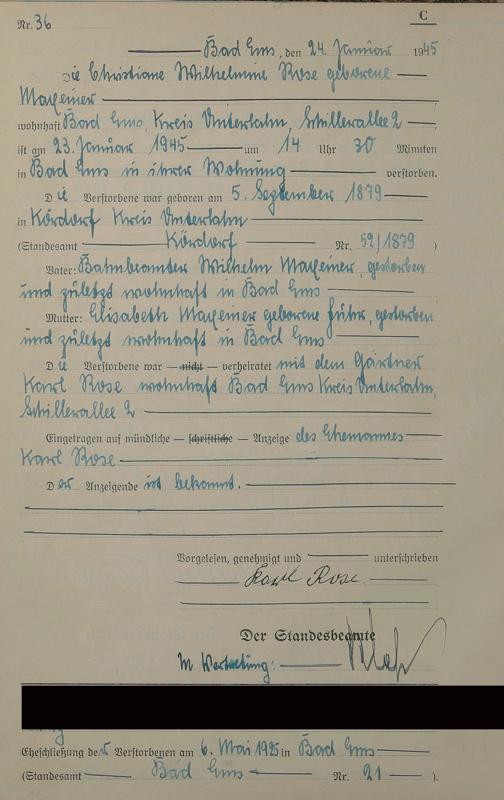 Nr. 36
C
Bad Ems, den 24. Januar 1945
Die Christiane Wilhelmine Rose geborene
Maxeiner
wohnhaft Bad Ems, Kreis Unterlahn, Schillerallee 2
ist am 23. Januar 1945 um 14 Uhr 30 Minuten
in Bad Ems in ihrer Wohnung verstorben.
Die Verstorbene war geboren am 5. September 1879
in Kördorf Kreis Unterlahn
(Standesamt Kördorf Nr. 59/1879 )
Vater: Bahnbeamter Wilhelm Maxeiner, gestorben
und zuletzt wohnhaft in Bad Ems
Mutter: Elisabeth Maxeiner geborene Führ, gestorben
und zuletzt wohnhaft in Bad Ems
Die Verstorbene war — nicht — verheiratet mit dem Gärtner
Karl Rose wohnhaft Bad Ems Kreis Unterlahn,
Schillerallee 2
Eingetragen auf mündliche — schriftliche — Anzeige des Ehemannes
Karl Rose
Der Anzeigende ist bekannt.
Vorgelesen, genehmigt und unterschrieben
Karl Rose
Der Standesbeamte
In Vertretung:
Eheschließung der Verstorbenen am 6. Mai 1925 in Bad Ems
(Standesamt Bad Ems Nr. 21 ).